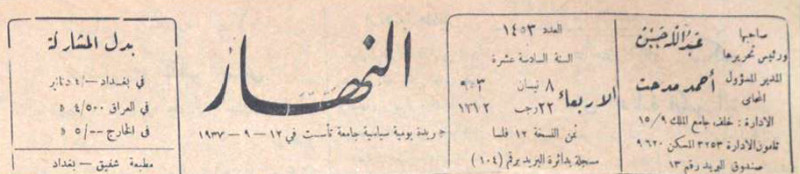 صاحبها
ورئيس تحريرها
عبد الله حسين
المدير المسؤول
المحامي
أحمد مدحت
الادارة : خلف جامع الملك ١٥/٩
تلفون الادارة ٣٢٥٣ المسكن ٩٦٢٠
صندوق البريد رقم ١٣
العدد ١٤٥٣
السنة السادسة عشرة
الاربعاء
٨ نيسان ٩٥٣
٢٢ رجب
ثمن النسخة ١٢ فلسا
مسجلة بدائرة البريد برقم (١٠٤)
النهار
جريدة يومية سياسية جامعة تأسست في ١٢ – ٩ – ١٩٣٧
بدل المشاركة
في بغداد –/٤ دنانير
في العراق ٤/٥٠٠ د
في الخارج –/٥ د
مطبعة شفيق – بغداد